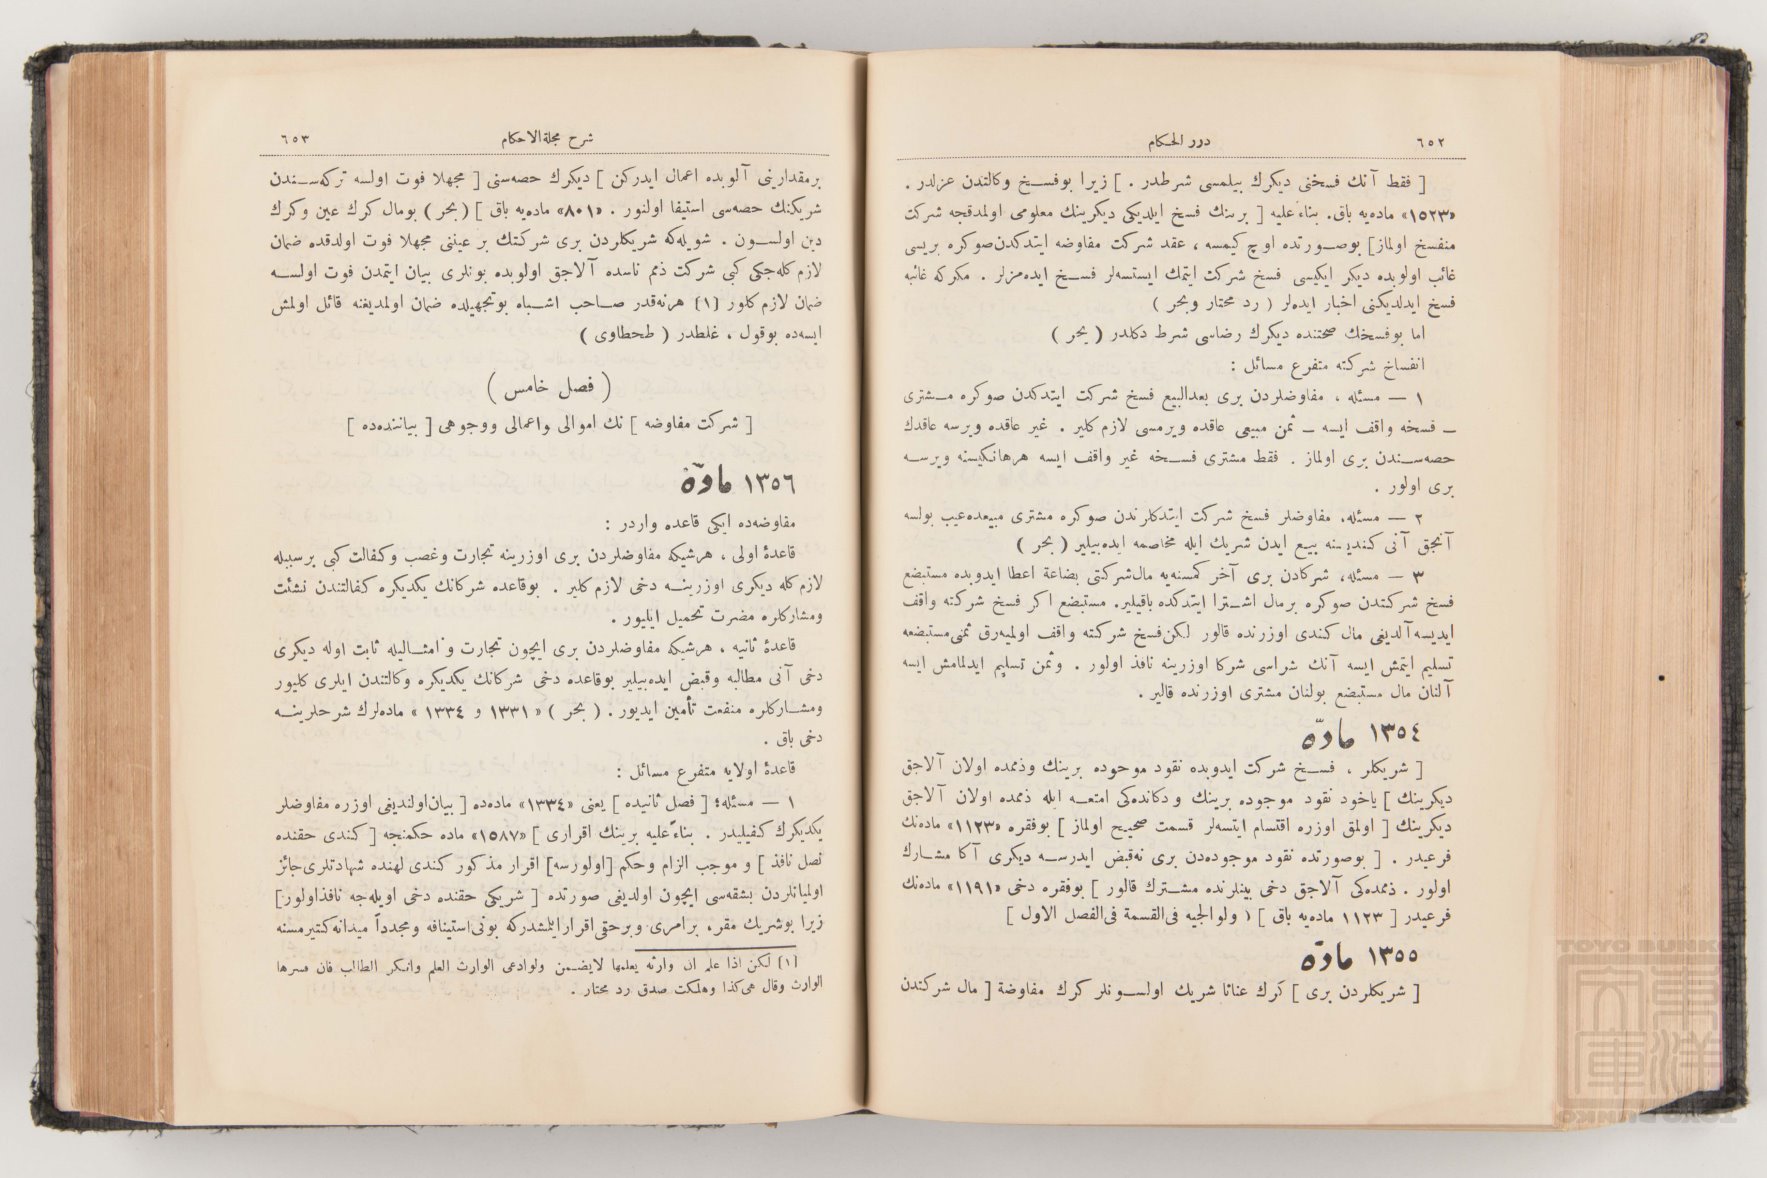 ٦٥٢
درر الحكام
[ فقط آنك فسخنى ديكرك بيلمسى شرطدر . ] زيرا بوفسخ وكالتدن عزلدر .
«١٥٢٣» ماده‌يه باق. بناءً عليه [ برينك فسخ ايلديكى ديكرينك معلومى اولمدقجه شركت
منفسخ اولماز] بوصورتده اوچ كيمسه ، عقد شركت مفاوضه ايتدكدن صوكره بريسى
غائب اولوبده ديكر ايكيسى فسخ شركت ايتمك ايستسه‌لر فسخ ايده‌مزلر . مكركه غائبه
فسخ ايدلديكنى اخبار ايده‌لر ( رد محتار وبحر )
اما بوفسخك صحتنده ديكرك رضاسى شرط دكلدر ( بحر )
انفساخ شركته متفرع مسائل :
١ — مسئله ، مفاوضلردن برى بعدالبيع فسخ شركت ايتدكدن صوكره مشترى
ــ فسخه واقف ايسه ــ ثمن مبيعى عاقده ويرمسى لازم كلير . غير عاقده ويرسه عاقدك
حصه‌سندن برى اولماز . فقط مشترى فسخه غير واقف ايسه هرهانكيسنه ويرسه
برى اولور .
٢ — مسئله، مفاوضلر فسخ شركت ايتدكلرندن صوكره مشترى مبيعده‌عيب بولسه
آنجق آنى كنديسنه بيع ايدن شريك ايله مخاصمه ايده‌بيلير ( بحر )
٣ — مسئله، شركادن برى آخر كمسنه‌يه مال‌شركتى بضاعة اعطا ايدوبده مستبضع
فسخ شركتدن صوكره برمال اشترا ايتدكده باقيلير. مستبضع اكر فسخ شركته واقف
ايديسه‌آلديغى مال كندى اوزرنده قالور لكن‌فسخ شركته واقف اولميه‌رق ثمنى‌مستبضعه
تسليم ايتمش ايسه آنك شراسى شركا اوزرينه نافذ اولور . وثمن تسليم ايدلمامش ايسه
آلنان مال مستبضع بولنان مشترى اوزرنده قالير .
١٣٥٤ مادّه
[ شريكلر ، فسخ شركت ايدوبده نقود موجوده برينك وذممده اولان آلاجق
ديكرينك ] ياخود نقود موجوده برينك ودكانده‌كى امتعه ايله ذممده اولان آلاجق
ديكرينك [ اولمق اوزره اقتسام ايتسه‌لر قسمت صحيح اولماز ] بوفقره «١١٢٣» ماده‌نك
فرعيدر . [ بوصورتده نقود موجوده‌دن برى نه‌قبض ايدرسه ديكرى آكا مشارك
اولور . ذممده‌كى آلاجق دخى بينلرنده مشترك قالور ] بوفقره دخى «١١٩١» ماده‌نك
فرعيدر [ ١١٢٣ ماده‌يه باق ] ( ولوالجيه فى‌القسمة فى‌الفصل الاول ]
١٣٥٥ مادّه
[ شريكلردن برى ] كرك عنانا شريك اولسونلر كرك مفاوضة [ مال شركتدن
شرح مجلة‌الاحكام
٦٥٣
برمقدارينى آلوبده اعمال ايدركن ] ديكرك حصه‌سنى [ مجهلا فوت اولسه تركه‌سندن
شريكنك حصه‌سى استيفا اولنور . «٨٠١» ماده‌يه باق ] ( بحر ) بومال كرك عين وكرك
دين اولسون . شويله‌كه شريكلردن برى شركتك بر عيننى مجهلا فوت اولدقده ضمان
لازم كله‌جكى كبى شركت ذمم ناسده آلاجق اولوبده بونلرى بيان ايتمدن فوت اولسه
ضمان لازم كلور [١] هرنه‌قدر صاحب اشباه بوتجهيلده ضمان اولمديغنه قائل اولمش
ايسه‌ده بوقول ، غلطدر ( طحطاوى )
( فصل خامس )
[ شركت مفاوضه ] نك اموالى واعمالى ووجوهى [ بياننده‌ده ]
١٣٥٦ مادّة
مفاوضه‌ده ايكى قاعده واردر :
قاعدۀ اولى ، هرشيكه مفاوضلردن برى اوزرينه تجارت وغصب وكفالت كبى برسببله
لازم كله ديكرى اوزرينه دخى لازم كلير . بوقاعده شركانك يكديكره كفالتندن نشئت
ومشاركلره مضرت تحميل ايليور .
قاعدۀ ثانيه ، هرشيكه مفاوضلردن برى ايچون تجارت و امثاليله ثابت اوله ديكرى
دخى آنى مطالبه وقبض ايده‌بيلير بوقاعده دخى شركانك يكديكره وكالتندن ايلرى كليور
ومشاركلره منفعت تأمين ايديور . ( بحر ) «١٣٣١ و ١٣٣٤» ماده‌لرك شرحلرينه
دخى باق .
قاعدۀ اولايه متفرع مسائل :
١ — مسئله؛ [ فصل ثانيده ] يعنى «١٣٣٤» ماده‌ده [ بيان‌اولنديغى اوزره مفاوضلر
يكديكرك كفيليدر . بناءً‌عليه برينك اقرارى ] «١٥٨٧» ماده حكمنجه [ كندى حقنده
نصل نافذ ] و موجب الزام وحكم [اولورسه] اقرار مذكور كندى لهنده شهادتلرى‌جائز
اولميانلردن بشقه‌سى ايچون اولديغى صورتده [ شريكى حقنده دخى اويله‌جه نافذاولور]
زيرا بوشريك مقر، برامرى وبرحقى‌اقرارايلشدركه بونى‌استينافه ومجدداً ميدانه‌كتيرمسنه
[١] لكن اذا علم ان وارثه يعلمها لايضمن ولوادعى الوارث العلم وانكر الطالب فان فسرها
الوارث وقال هى‌كذا وهلكت صدق رد محتار .
TOYO BUNKO